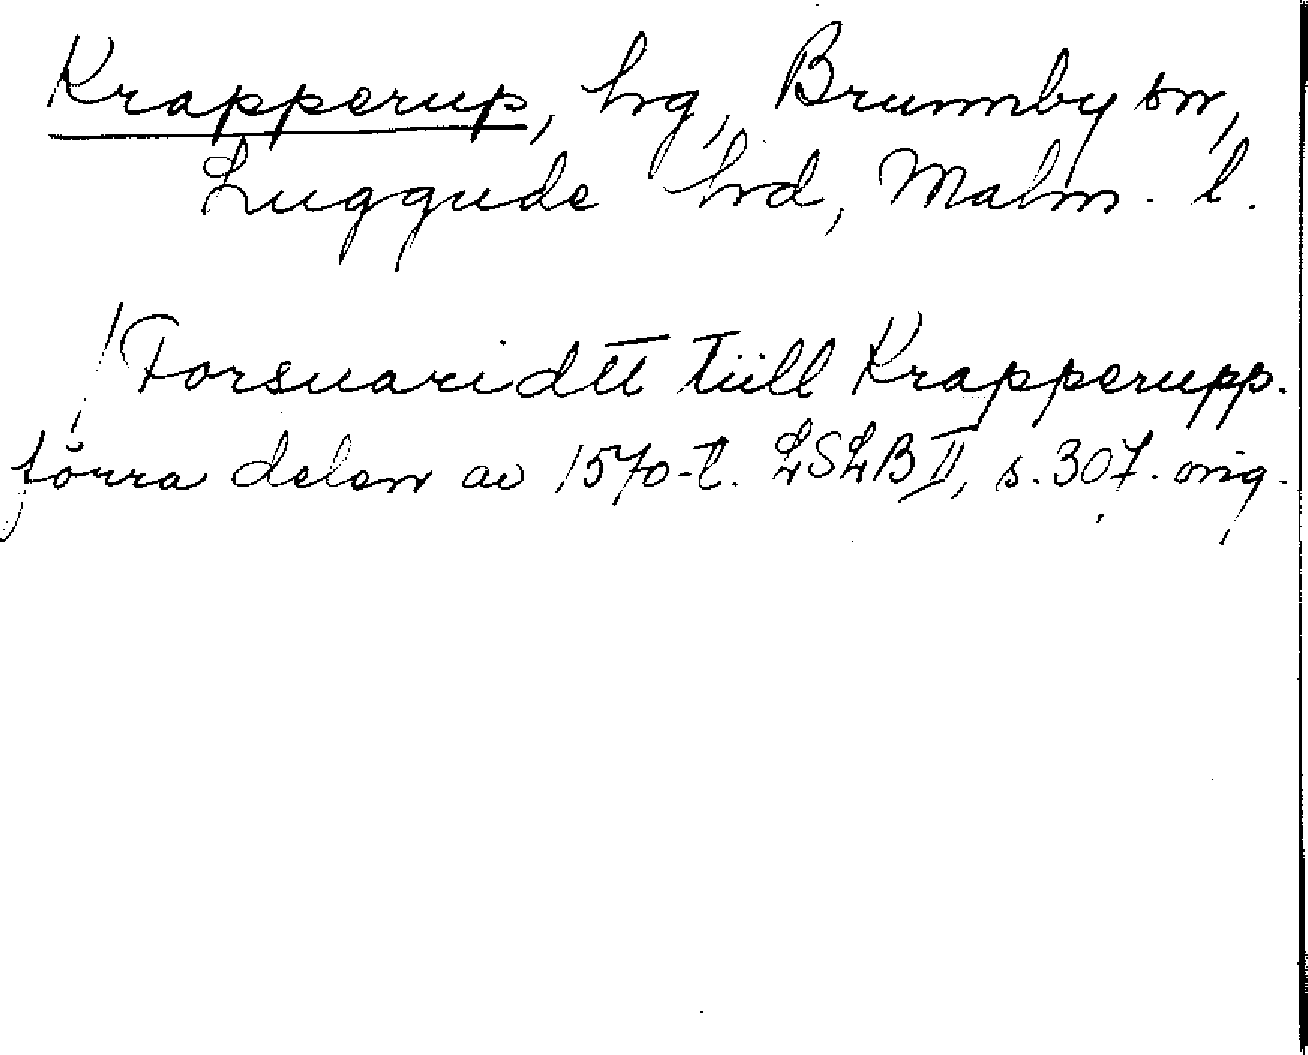 Krapperup, hrg, Brunnby sn,
Luggude hrd, Malm. l.
/Forsuaridtt tiill Krapperupp.
förra delen av 1570-t. LSLB II, s. 307. orig.